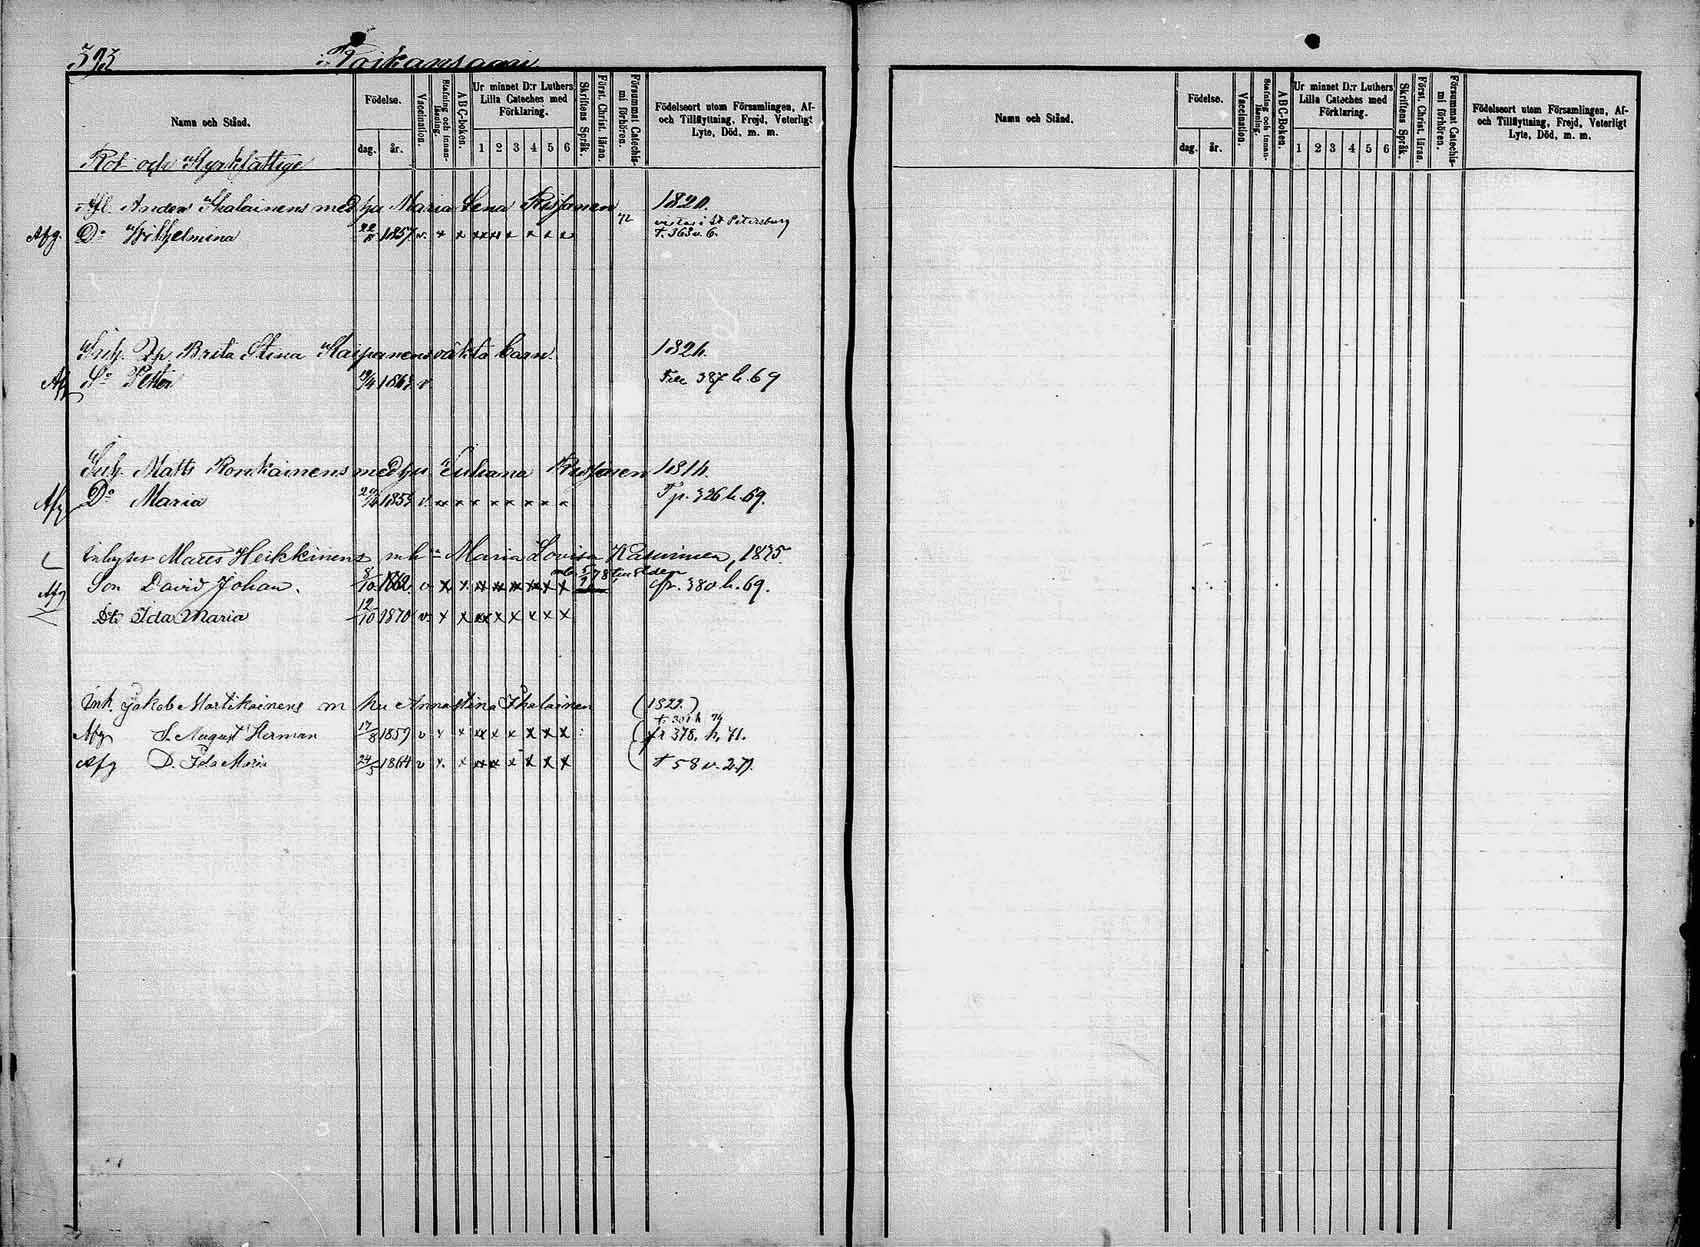 393
Namn och Stånd.
Födelse.
dag. år.
Vaccination.
Stafning och Innanläsning.
ABC-boken.
Ur minnet D:r Luthers Lilla Cateches med Förklaring.
1 2 3 4 5 6
Skriftens Språk.
Först. Christ. läran.
Försummat Catechismi förhören.
Födelseort utom Församlingen, Af-
och Tillflyttning, Frejd, Veterligt
Lyte, Död, m. m.
Rot och Kyrkfattige
Anders Ikalainens med hu Maria Lena 1820.
vistas i St Petersburg
Afg. Dr Wilhelmina 1857 v. x x x x x x x x
Inh. Brita Stina barn. 1824.
Afg Sn Petter 1863 v 387 h. 69
Inh. Matts med hu Juliana 1814.
Afg Dr Maria v x x x x x x x x p. 326 h. 69.
Inhyses Matts Heikkinens m h Maria Lovisa 1835.
Afg Son David Johan. 8/10 1862 v x x x x x x x x fr. 380 h. 69.
Dtr Ida Maria 12/10 1870 v x x x x x x x x
Inh. Jakob Martikainens m hu Anna Stina Ikalainen (1822.)
Afg S. August Herman 17/8 1859 v x x x x x x x x fr 378. h. 71.
Afg D. Ida Maria 24/5 1864 v x x x x x x x x t 58 v. 279.
Namn och Stånd.
Födelse.
dag. år.
Vaccination.
Stafning och Innanläsning.
ABC-boken.
Ur minnet D:r Luthers Lilla Cateches med Förklaring.
1 2 3 4 5 6
Skriftens Språk.
Först. Christ. läran.
Försummat Catechismi förhören.
Födelseort utom Församlingen, Af-
och Tillflyttning, Frejd, Veterligt
Lyte, Död, m. m.